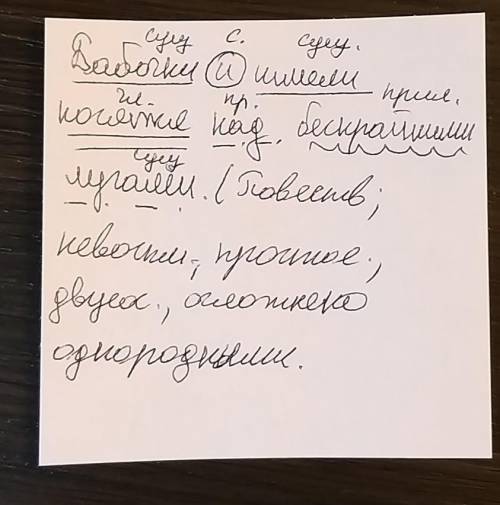 сущ с. сущ.
Бабочки и шмели
гл. пр. прил.
носятся над бескрайними
сущ
лугами. (Повеств;
невоскл., простое.,
двусос., осложнено
однородными.